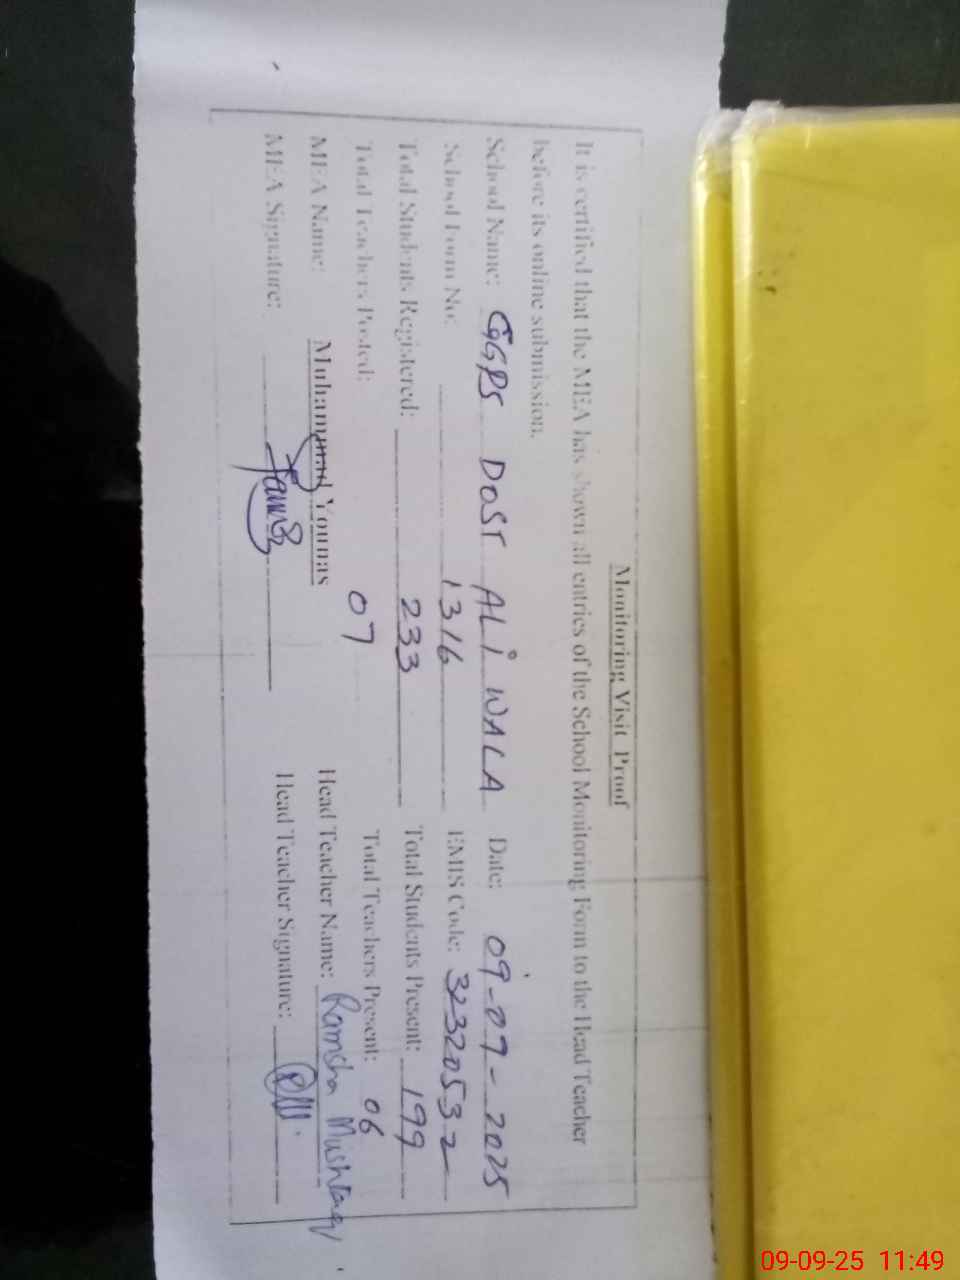 Monitoring Visit Proof
It is certified that the MEA has shown all entries of the School Monitoring Form to the Head Teacher
before its online submission.
School Name: GGPS DOST ALI WALA Date: 09-09-2025
School Form No: 1316 EMIS Code: 32320532
Total Students Registered: 233 Total Students Present: 199
Total Teachers Posted: 07 Total Teachers Present: 06
MEA Name: Muhammad Younas Head Teacher Name: Ramsha Mushtaq
MEA Signature: Head Teacher Signature:
09-09-25 11:49